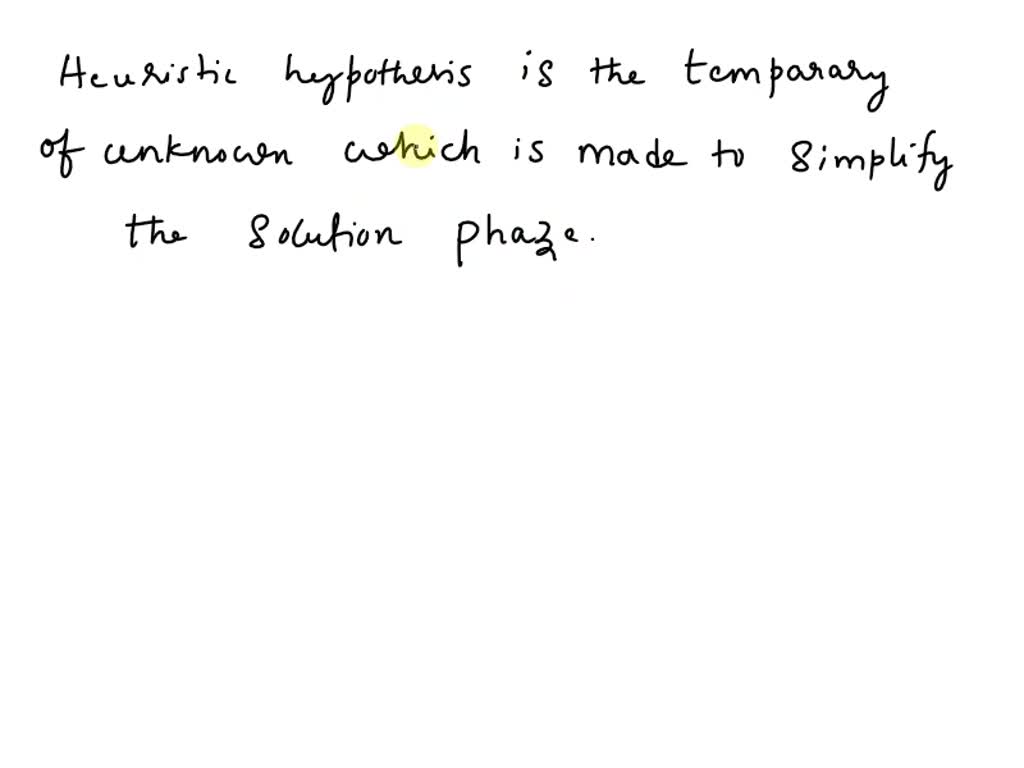 Heuristic hypothesis is the temparary
of unknown which is made to simplify
the solution phaze.